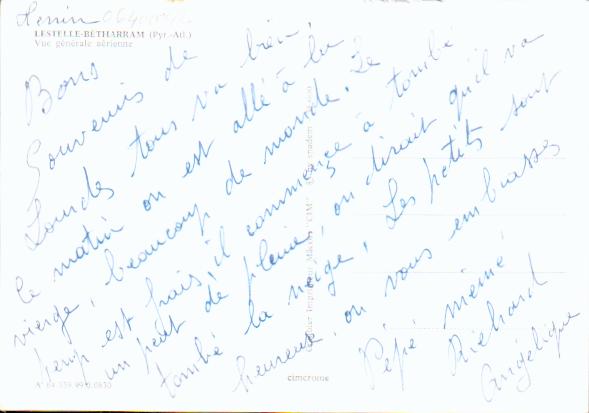 LESTELLE-BÉTHARRAM (Pyr.-Atl.)
Vue générale aérienne
Bons
Souvenirs de
Lourdes tous va bien,
le matin on est allé à la
vierge, beaucoup de monde. Le
temp est frais, il commence à tombé
un peut de pluie, on dirait qu'il va
tombé la neige, Les petits sont
heureux, on vous embrasses
Pépé mémé
Richard
Angélique
cimcrome